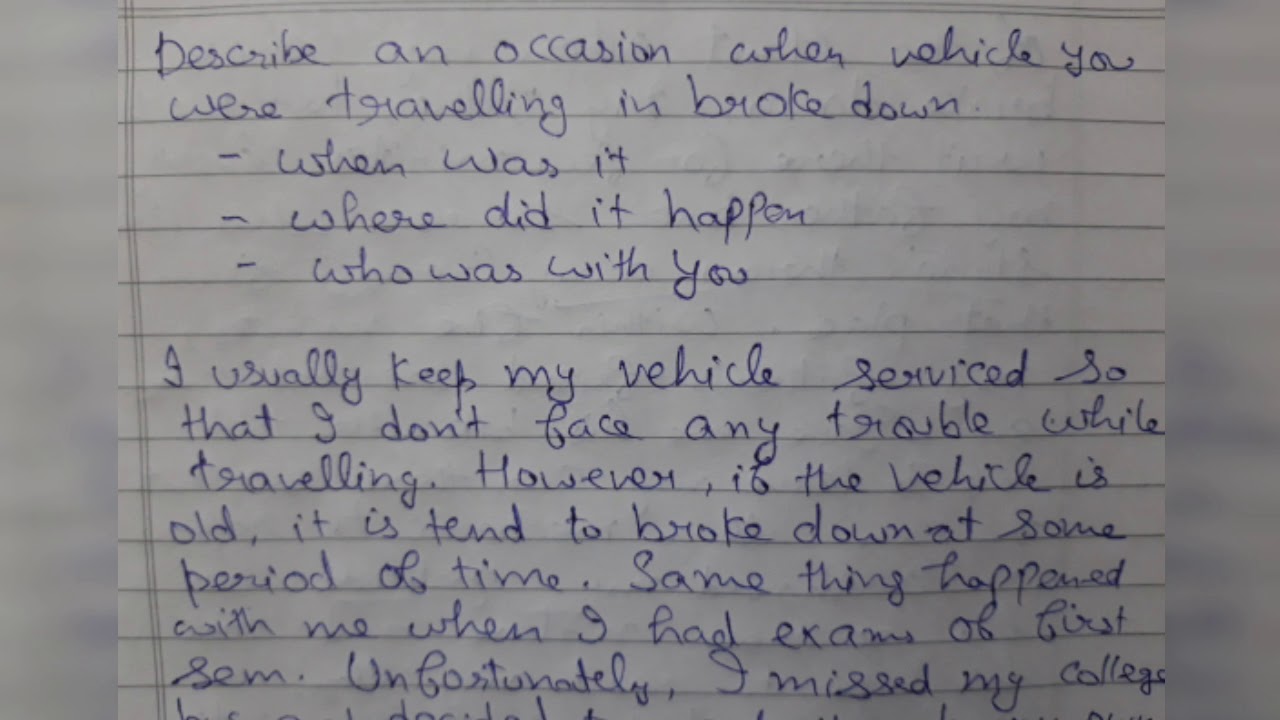 Describe an occasion when vehicle you
were travelling in broke down.
- when was it
- where did it happen
- who was with you
I usually keep my vehicle serviced so
that I don't face any trouble while
travelling. However, if the vehicle is
old, it is tend to broke down at some
period of time. Same thing happened
with me when I had exams of first
sem. Unfortunately, I missed my college
decided